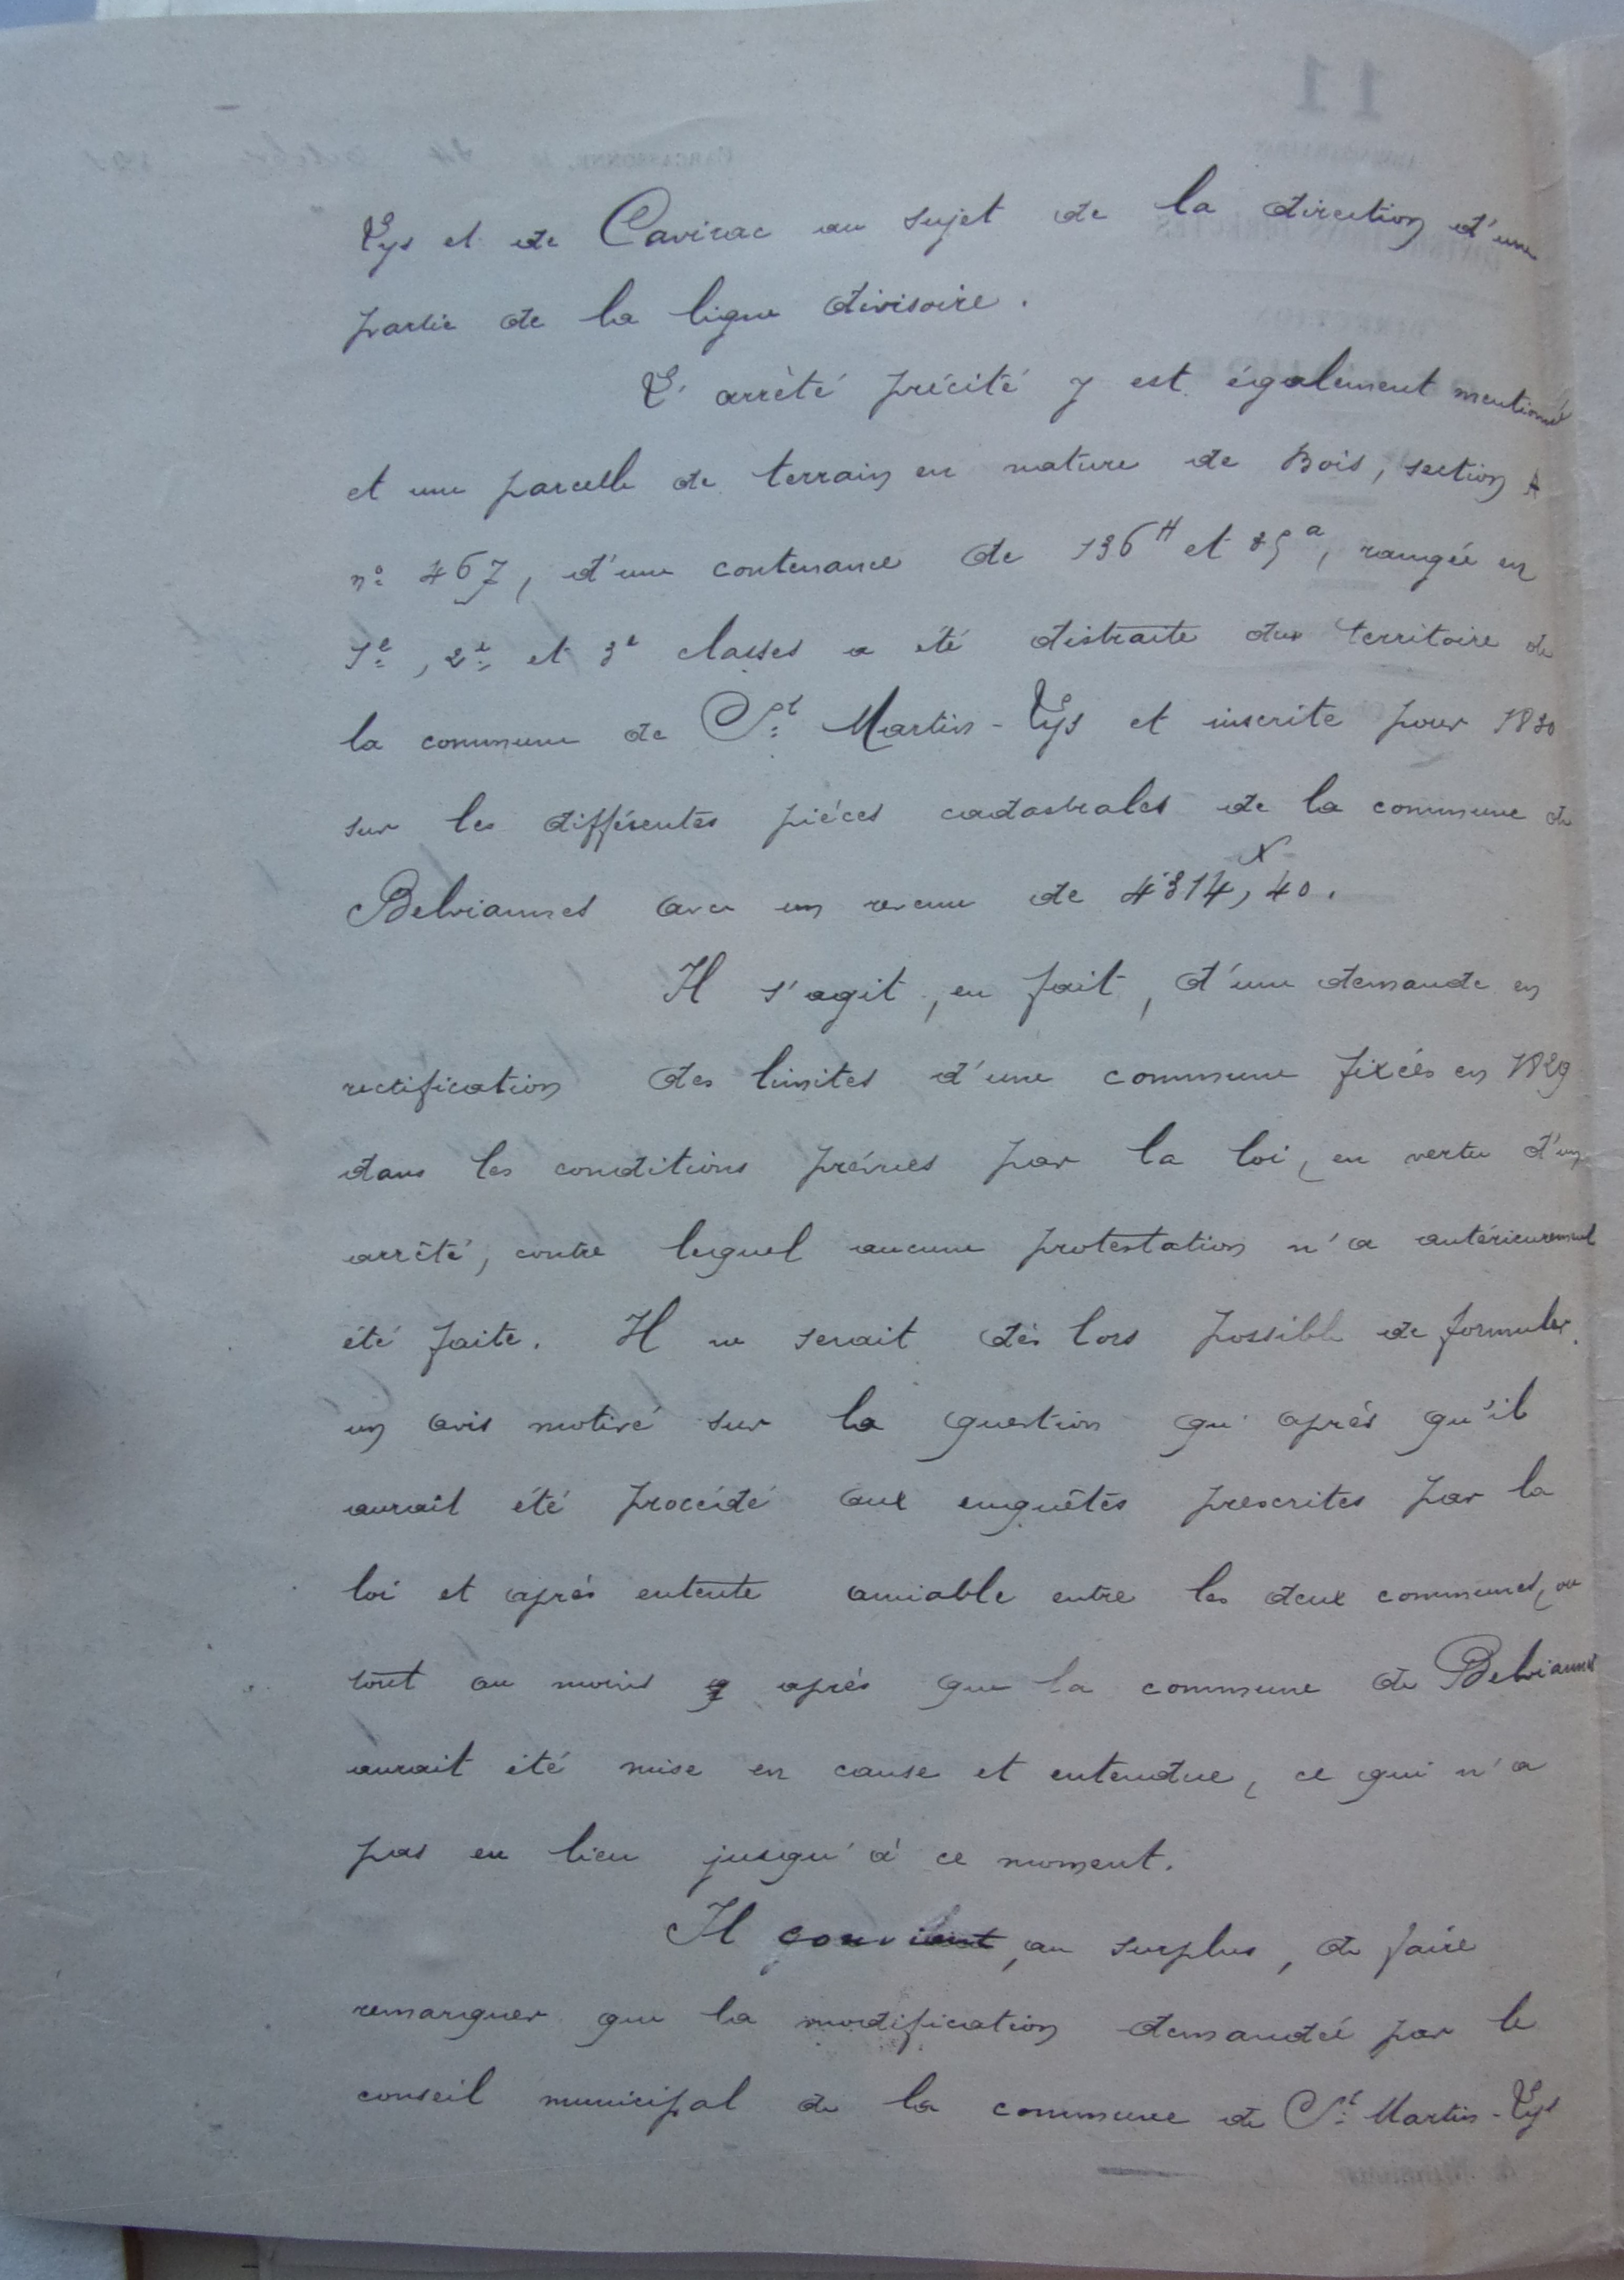 Lys et de Cavirac au sujet de la direction d'une
partie de la ligne divisoire.
L'arrêté précité y est également mentionné
et une parcelle de terrain en nature de Bois, section A
nº 467, d'une contenance de 136H et 85a, rangée en
1e, 2e et 3e classes a été distraite du territoire de
la commune de St Martin-Lys et inscrite pour 1830
sur les différentes pièces cadastrales de la commune de
Belviannes avec un revenu de 4314, 40.
Il s'agit, en fait, d'une demande en
rectification des limites d'une commune fixées en 1829
dans les conditions prévues par la loi, en vertu d'un
arrêté, contre lequel aucune protestation n'a antérieurement
été faite. Il ne serait dès lors possible de formuler
un avis motivé sur la question qu'après qu'il
aurait été procédé aux enquêtes prescrites par la
loi et après entente amiable entre les deux communes, ou
tout au moins après que la commune de Belviannes
aurait été mise en cause et entendue, ce qui n'a
pas eu lieu jusqu'à ce moment.
Il convient, au surplus, de faire
remarquer que la modification demandée par le
conseil municipal de la commune de St Martin-Lys